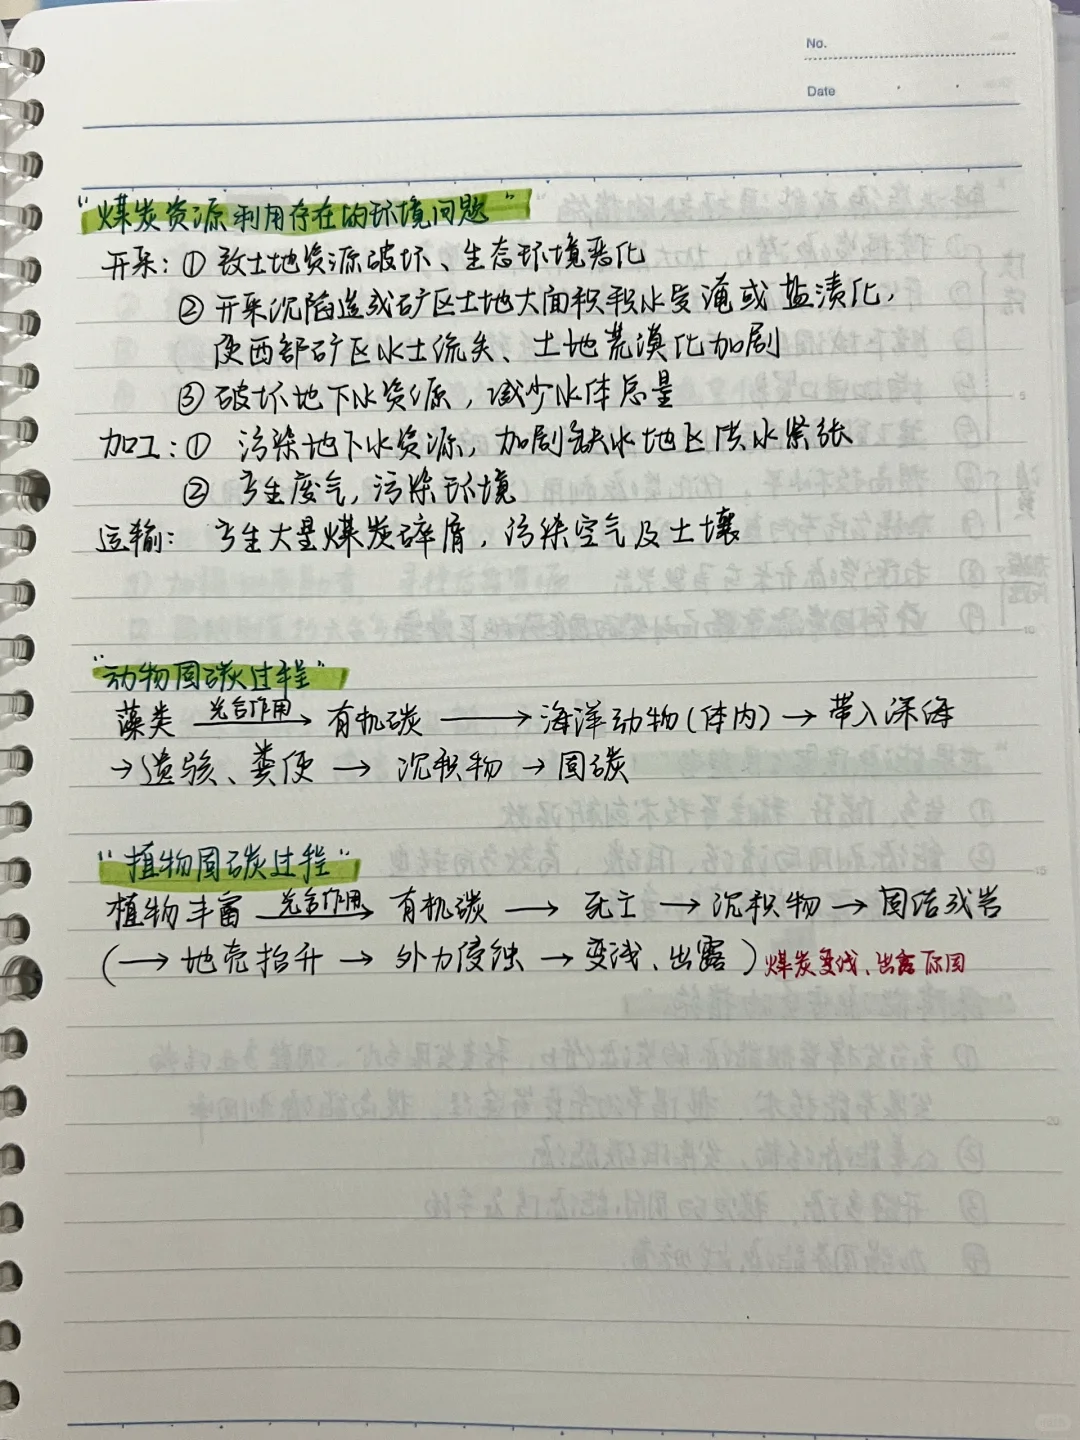 No.
Date
"煤炭资源利用存在的环境问题"
开采：① 致土地资源破坏、生态环境恶化
② 开采沉陷造成矿区土地大面积积水受淹或盐渍化，
使西部矿区水土流失、土地荒漠化加剧
③ 破坏地下水资源，减少水体总量
加工：① 污染地下水资源，加剧缺水地区供水紧张
② 产生废气，污染环境
运输：产生大量煤炭碎屑，污染空气及土壤
"动物固碳过程"
藻类 光合作用→ 有机碳 → 海洋动物(体内) → 带入深海
→ 遗骸、粪便 → 沉积物 → 固碳
"植物固碳过程"
植物丰富 光合作用→ 有机碳 → 死亡 → 沉积物 → 固结成岩
(→ 地壳抬升 → 外力侵蚀 → 变浅、出露) 煤炭变浅、出露原因